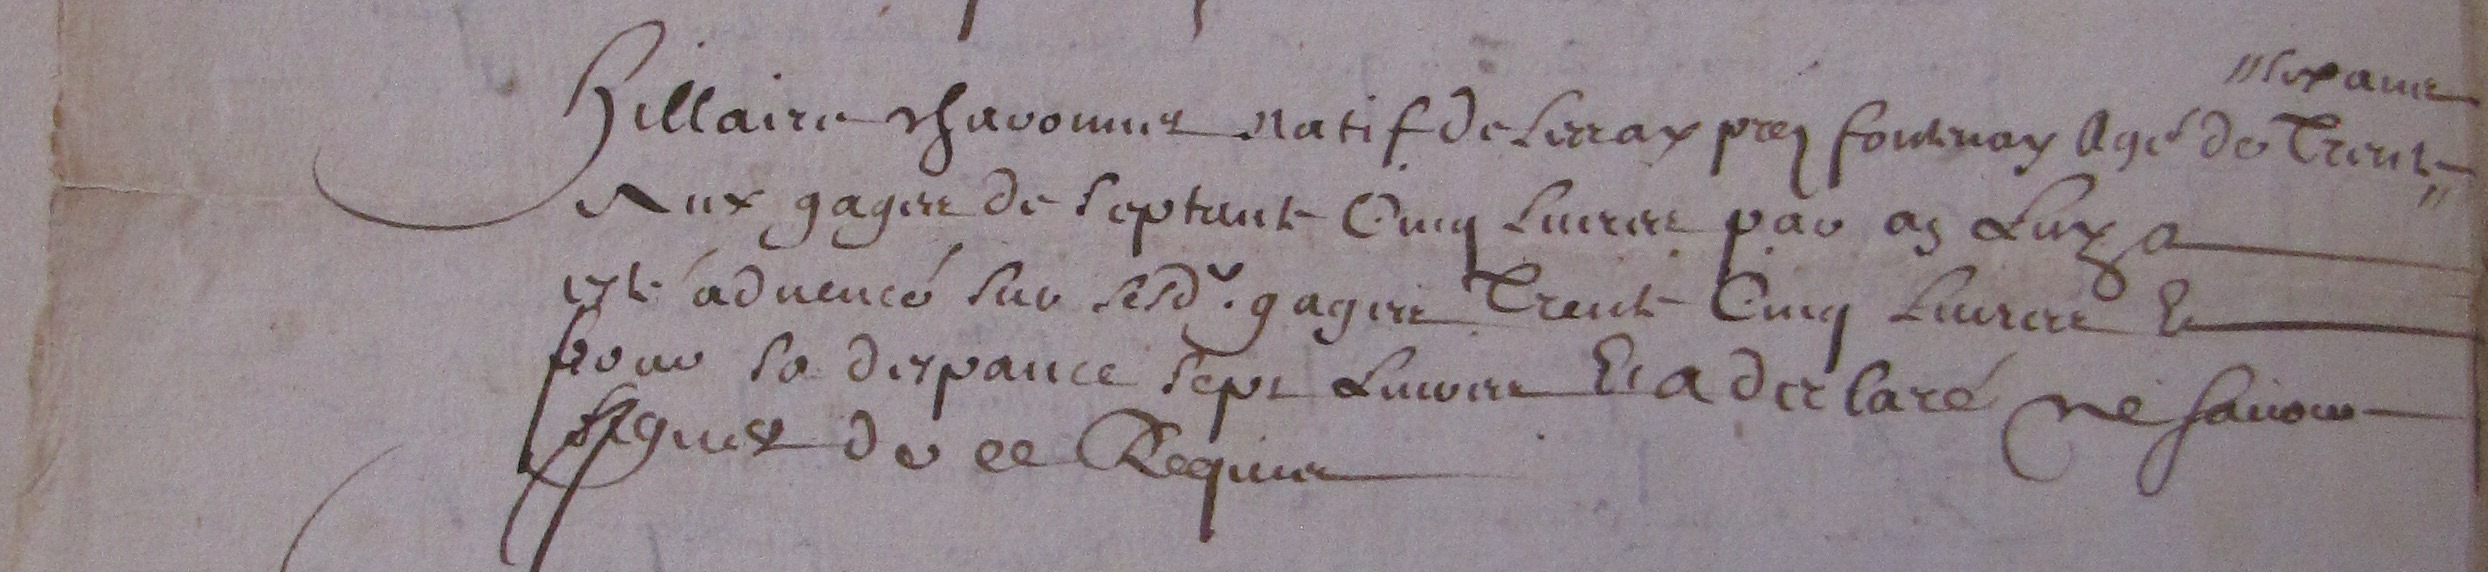 "six ans
Hillaire Chavonnet natif de Serray prez fontenay Agé de Trente "
Aux gages de septante Cinq Livres par an Luy a
esté advencé sur sesd. gages Trente Cinq Livres Et
pour sa despance sept Livres Et a desclaré ne savoir
signer de ce Requis